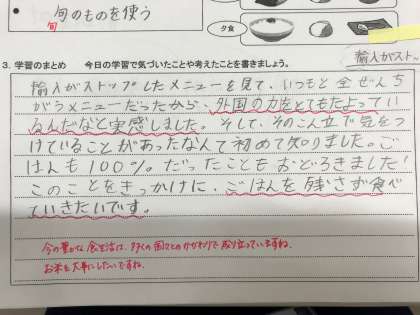 旬のものを使う
旬
夕食
3. 学習のまとめ　今日の学習で気づいたことや考えたことを書きましょう。
輸入がスト～
輸入がストップしたメニューを見て、いつもと全ぜんち
がうメニューだったから、外国の力をとてもたよってい
るんだなと実感しました。そして、そのこん立で気をつ
けていることがあったなんて初めて知りました。ご
はんも100%。だったこともおどろきました!
このことをきっかけに、ごはんを残さず食べ
ていきたいです。
今の豊かな食生活は、多くの国々とのかかわりで成り立っていますね。
お米も大事にしたいですね。